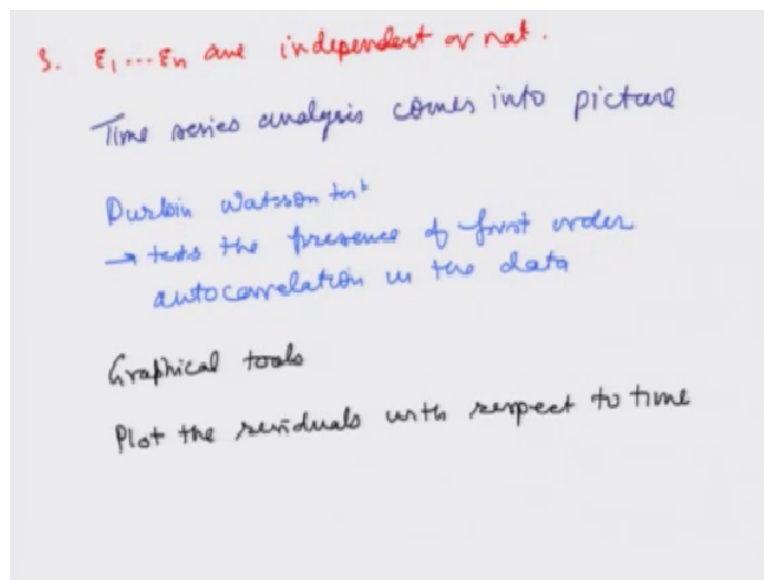 3. ε₁ ... εₙ are independent or not.
Time series analysis comes into picture
Durbin Watson test
→ tests the presence of first order
autocorrelation in the data
Graphical tools
Plot the residuals with respect to time